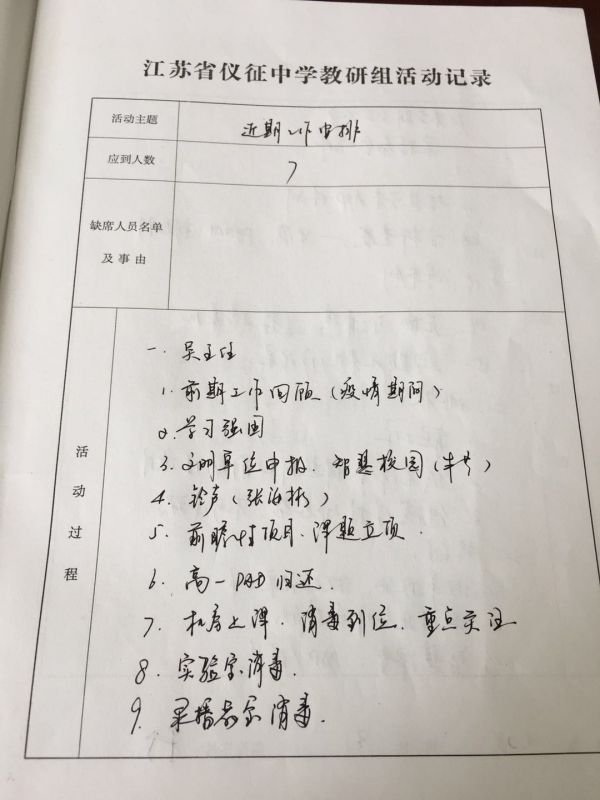 江苏省仪征中学教研组活动记录
活动主题
近期工作安排
应到人数
7
缺席人员名单
及事由
活动过程
一、吴主任
1. 前期工作回顾（疫情期间）
2. 学习强国
3. 文明单位申报、智慧校园（牛片）
4. 铃声（张海彬）
5. 前瞻性项目、课题立项
6. 高一PAD归还.
7. 机房上课、消毒到位、重点关注
8. 实验室消毒.
9. 录播教室消毒.